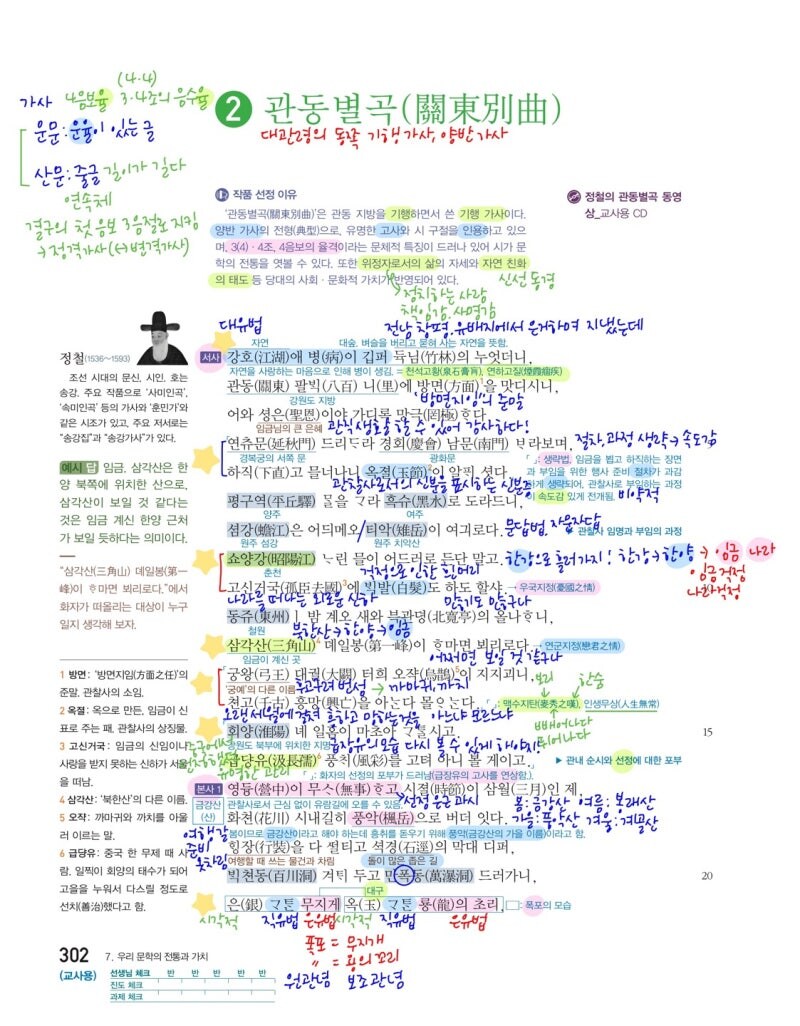 (4·4)
가사 4음보율 3·4조의 음수율
운문 : 운율이 있는 글
산문 : 줄글 길이가 길다
연속체
결구의 첫 음보 3음절로 지킴
→ 정격가사(↔변격가사)
2 관동별곡(關東別曲)
대관령의 동쪽 기행가사, 양반가사
작품 선정 이유
'관동별곡(關東別曲)'은 관동 지방을 기행하면서 쓴 기행 가사이다.
양반 가사의 전형(典型)으로, 유명한 고사와 시 구절을 인용하고 있으
며, 3(4)·4조, 4음보의 율격이라는 문체적 특징이 드러나 있어 시가 문
학의 전통을 엿볼 수 있다. 또한 위정자로서의 삶의 자세와 자연 친화
의 태도 등 당대의 사회·문화적 가치가 반영되어 있다.
신선 동경
→ 정치하는 사람
책임감. 사명감
정철의 관동별곡 동영
상_교사용 CD
정철(1536~1593)
조선 시대의 문신, 시인. 호는
송강. 주요 작품으로 '사미인곡',
'속미인곡' 등의 가사와 '훈민가'와
같은 시조가 있고, 주요 저서로는
"송강집"과 "송강가사"가 있다.
예시 답 임금. 삼각산은 한
양 북쪽에 위치한 산으로,
삼각산이 보일 것 같다는
것은 임금 계신 한양 근처
가 보일 듯하다는 의미이다.
"삼각산(三角山) 뎨일봉(第一
峰)이 ᄒᆞ마면 뵈리로다."에서
화자가 떠올리는 대상이 누구
일지 생각해 보자.
1 방면: '방면지임(方面之任)'의
준말. 관찰사의 소임.
2 옥절: 옥으로 만든, 임금이 신
표로 주는 패. 관찰사의 상징물.
3 고신거국: 임금의 신임이나
사랑을 받지 못하는 신하가 서울
을 떠남.
4 삼각산: '북한산'의 다른 이름.
5 오작: 까마귀와 까치를 아울
러 이르는 말.
6 급댱유: 중국 한 무제 때 사
람. 일찍이 회양의 태수가 되어
고을을 누워서 다스릴 정도로
선치(善治)했다고 함.
대유법
전남 창평. 유배지에서 은거하며 지냈는데
자연 대숲. 벼슬을 버리고 묻혀 사는 자연을 뜻함.
서사 강호(江湖)애 병(病)이 깁퍼 듁님(竹林)의 누엇더니,
자연을 사랑하는 마음으로 인해 병이 생김. = 천석고황(泉石膏肓), 연하고질(煙霞痼疾)
관동(關東) 팔ᄇᆡᆨ(八百) 니(里)에 방면(方面)1을 맛디시니,
강원도 지방 '방면지임'의 준말
어와 셩은(聖恩)이야 가디록 망극(罔極)ᄒᆞ다.
임금님의 큰 은혜 관직생활을 할 수 있어 감사하다!
「연츄문(延秋門) 드리ᄃᆞ라 경회(慶會) 남문(南門) ᄇᆞ라보며, 절차, 과정 생략→속도감
경복궁의 서쪽 문 광화문
하직(下直)고 믈너나니 옥졀(玉節)2이 알ᄑᆡ 셧다.
「 」: 생략법. 임금을 뵙고 하직하는 장면
과 부임을 위한 행사 준비 절차가 과감
하게 생략되어, 관찰사로 부임하는 과정
이 속도감 있게 전개됨. 비약적
관찰사로서의 신분을 표시하는 신분증
평구역(平丘驛) ᄆᆞᆯ을 ᄀᆞ라 흑슈(黑水)로 도라드니,
양주 여주
셤강(蟾江)은 어듸메오/티악(雉岳)이 여긔로다. 문답법. 자문자답
원주 섬강 원주 치악산
관찰사 임명과 부임의 과정
쇼양강(昭陽江) ᄂᆞ린 믈이 어드러로 든단 말고. 한강으로 흘러가지! 한강→한양→임금 나라
춘천 걱정으로 인한 흰머리
임금걱정
나라걱정
고신거국(孤臣去國)3에 ᄇᆡᆨ발(白髮)도 하도 할샤 → 우국지정(憂國之情)
나라를 떠나는 외로운 신하 많기도 많구나
동쥐(東州)ㅣ 밤 계오 새와 븍관뎡(北寬亭)의 올나ᄒᆞ니,
철원 북한산→한양→임금
삼각산(三角山)4 뎨일봉(第一峰)이 ᄒᆞ마면 뵈리로다. → 연군지정(戀君之情)
임금이 계신 곳 어쩌면 보일 것 같구나
「궁왕(弓王) 대궐(大闕) 터희 오쟉(烏鵲)5이 지지괴니,
'궁예'의 다른 이름 후고구려 번성 → 까마귀, 까치
보리 한숨
쳔고(千古) 흥망(興亡)을 아ᄂᆞᆫ다 몰ᄋᆞᄂᆞᆫ다.」 : 맥수지탄(麥秀之嘆), 인생무상(人生無常)
오랜 세월에 걸쳐 흥하고 망하는 것을 아느냐 모르느냐
빼어나다
튀어나다
회양(淮陽) 녜 일홈이 마초아 ᄀᆞᄐᆞᆯ시고.
15
강원도 북부에 위치한 지명 급장유의 모습 다시 볼 수 있게 하야지!
중국에서
선정했던
유명한 관리
급댱유(汲長孺)6 풍ᄎᆡ(風彩)를 고텨 아니 볼 게이고.
▷ 관내 순시와 선정에 대한 포부
「 」: 화자의 선정의 포부가 드러남(급장유의 고사를 연상함.).
본사 1 영듕(營中)이 무ᄉᆞ(無事)ᄒᆞ고 시졀(時節)이 삼월(三月)인 제,
금강산
(산)
관찰사로서 근심 없이 유람길에 오를 수 있음. → 선정 은근 과시
봄 : 금강산 여름 : 봉래산
가을 : 풍악산 겨울 : 개골산
화쳔(花川) 시내길히 풍악(楓岳)으로 버더 잇다.
봄이므로 금강산이라고 해야 하는데 흥취를 돋우기 위해 풍악(금강산의 가을 이름)이라고 함.
여행갈
준비
옷차림
ᄒᆡᆼ장(行裝)을 다 썰티고 셕경(石逕)의 막대 디퍼,
여행할 때 쓰는 물건과 차림 돌이 많은 좁은 길
ᄇᆡᆨ쳔동(百川洞) 겨ᄐᆡ 두고 만폭동(萬瀑洞) 드러가니,
20
대구
은(銀) ᄀᆞᄐᆞᆫ 무지게 옥(玉) ᄀᆞᄐᆞᆫ 룡(龍)의 초리,
□: 폭포의 모습
시각적 직유법 은유법 시각적 직유법 은유법
폭포 = 무지개
〃 = 용의 꼬리
원관념 보조관념
302 7. 우리 문학의 전통과 가치
(교사용)
선생님 체크 반 반 반 반 반
진도 체크
과제 체크